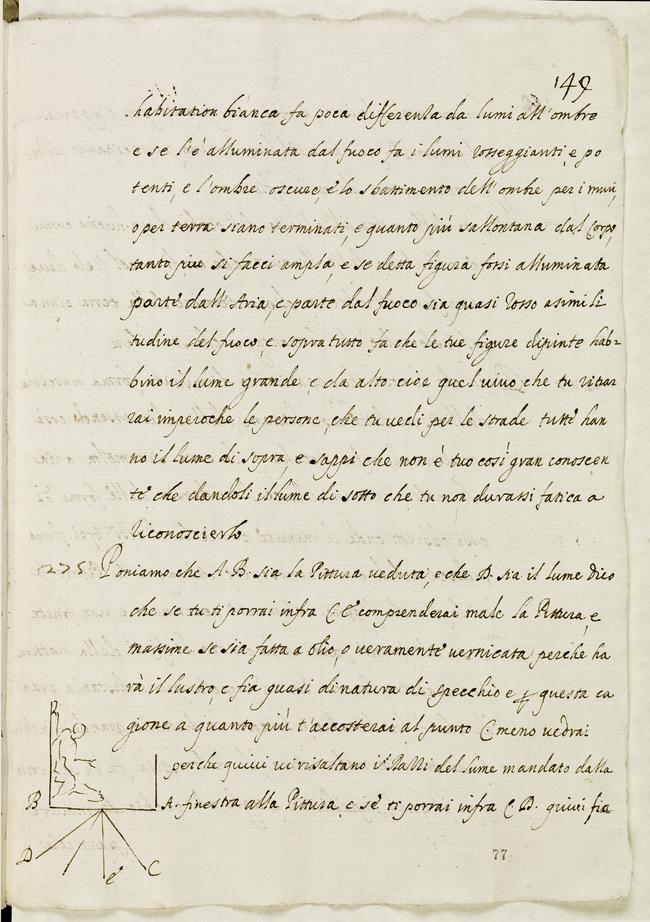 149
habitation bianca fa poca differenza da lumi all'ombre
e se l'è alluminata dal fuoco fa i lumi rosseggianti, e po
tenti, e l'ombre oscure, e lo sbattimento dell'ombre per i muri,
o per terra siano terminati, e quanto più s'allontana dal Corpo,
tanto piu si facci ampla, e se detta figura fossi alluminata
parte dall'Aria, e parte dal fuoco sia quasi rosso a simili
tudine del fuoco, e sopra tutto fa che le tue figure dipinte hab=
bino il lume grande, e da alto cioè quel vivo che tu ritrar
rai imperoché le persone, che tu vedi per le strade tutte han
no il lume di sopra, e sappi che non è tuo così gran conoscen
te che dandoli il lume di sotto che tu non durassi fatica a
riconoscierlo
275 Poniamo che A. B. sia la Pittura veduta, e che D. sia il lume dico
che se tu ti porrai infra C e comprenderai male la Pittura, e
massime se sia fatta a olio, o veramente vernicata perche ha
rà il lustro, e fia quasi di natura di specchio e p questa ca
gione a quanto più t'accosterai al punto C meno vedrai
perche quivi vi risaltano i Razzi del lume mandato dalla
A. finestra alla Pittura, e se ti porrai infra C D. quivi fia
B
D
e
C
77